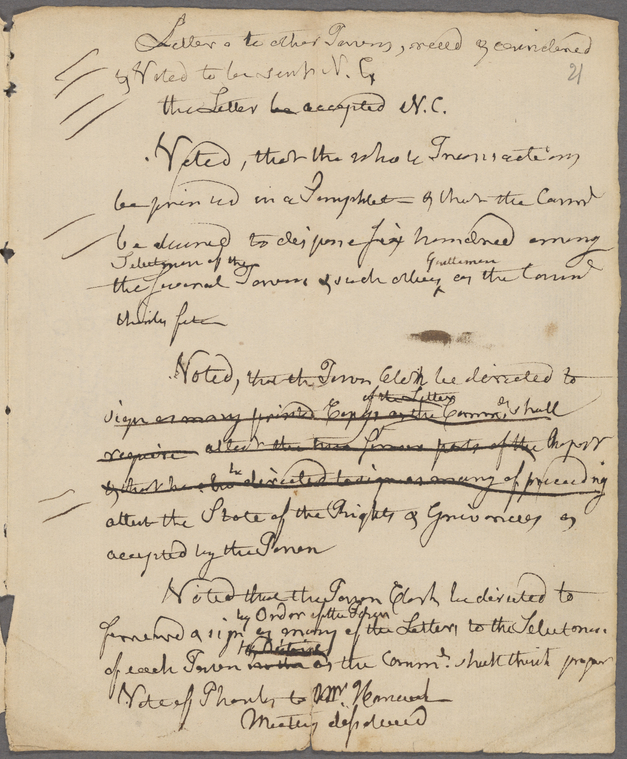 Letter to other Towns, read & considered
21
& Voted to be sent N. C.
the Letter be accepted N.C.
Voted, that the whole Transactions
be printed in a Pamphlet & that the Comme
be desired to dispose six hundred among
Selectmen of the Gentlemen
the several Towns & such other as the Comme
thinks fit
Voted, that the Town Clerk be directed to
of the Letter
sign as many printed Copys as the Comme shall
require attest the two former parts of the Report
& that he be directed to sign as many of preceeding
attest the State of the Rights & Grievances as
accepted by the Town
Voted that the Town Clerk be directed to
by Order of the Town
forward & sign as many of the Letters to the Selectmen
of each Town as the Comme shall think proper
Vote of Thanks to Mr. Hancock
Meeting dissolved